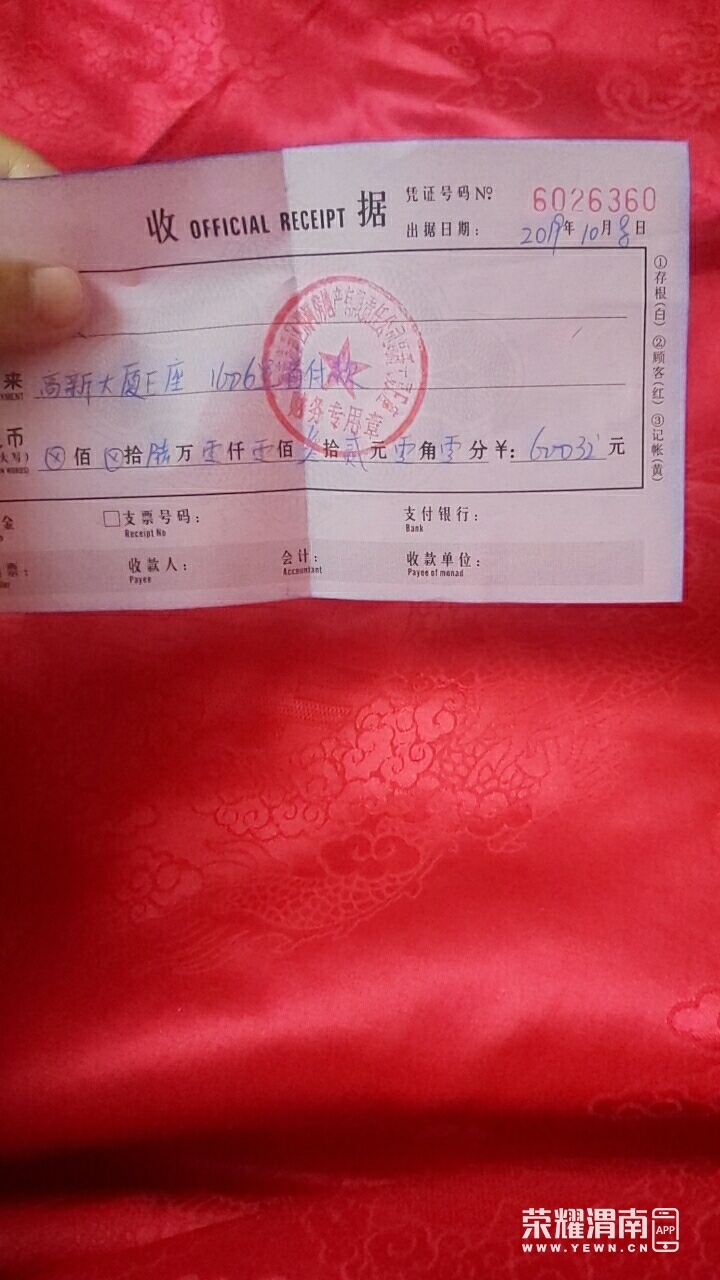 收 OFFICIAL RECEIPT 据
凭证号码No 6026360
出据日期: 2019年10月8日
来 高新大厦E座 1606室首付款
币 ⊗佰⊗拾陆万零仟零佰叁拾贰元零角零分¥: 60032元
金 □支票号码: 支付银行:
Receipt No Bank
票: 收款人: 会计: 收款单位:
Payee Accountant Payee of monad
①存根(白) ②顾客(红) ③记帐(黄)
财务专用章
荣耀渭南 APP
WWW.YEWN.CN